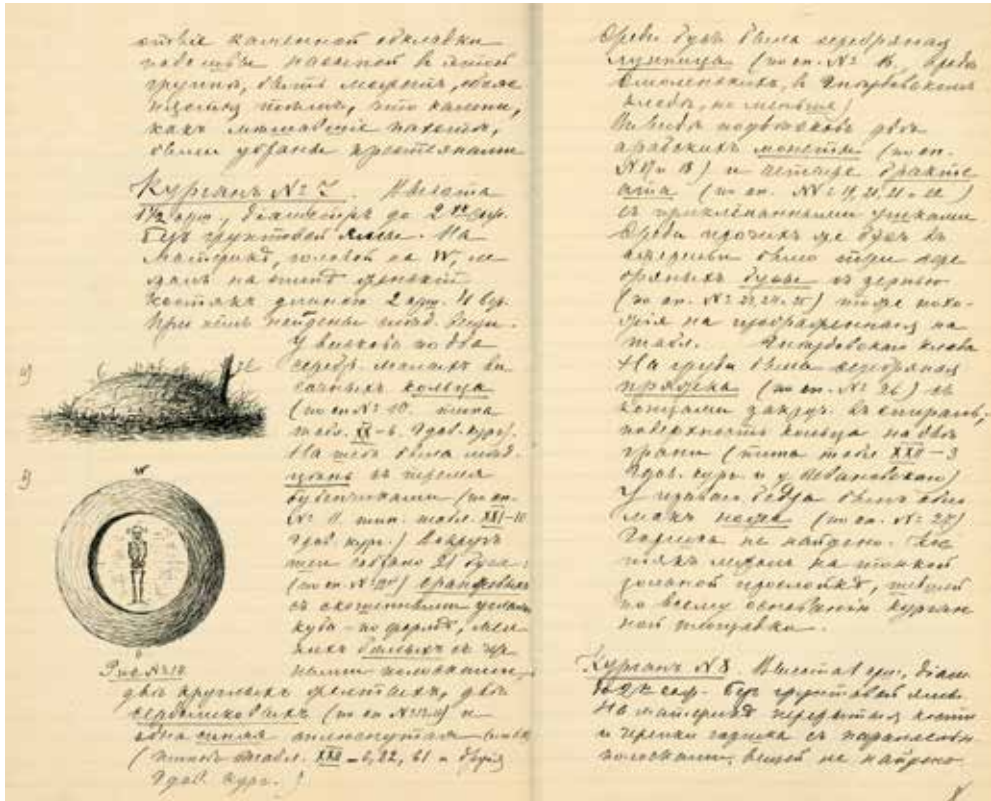 ствіе каменной обкладки
подошвы насыпей въ этой
группѣ, быть можетъ, объяс
няется тѣмъ, что камни,
какъ мѣшавшіе пахотѣ,
были убраны крестьянами
Курганъ № 7. Высота
1½ арш., діаметръ до 2 саж.
Безъ грунтовой ямы. На
материкѣ, головой на W, ле
жалъ на спинѣ женскій
костякъ длиною 2 арш. 4 вер.
При нёмъ найдены слѣд. вещи.
У висковъ по два
серебр. малыхъ ви
сочныхъ кольца
(по оп. № 10. типа
табл. XX-6. Гдов. кург.)
На шеѣ была мѣд.
цѣпь съ тремя
бубенчиками (по оп.
№ 11. тип. табл. XXI-10
Гдов. кург.) Вокругъ
шеи собрано 21 буса:
(по оп. №) оранжевыхъ
съ скошенными углами
куба - по формѣ,
бѣлыхъ съ
ными полосками,
а)
б)
W
Рис. №
двѣ круглыхъ желтыхъ, двѣ
сердоликовыхъ (по оп. №) и
одна синяя сплюснутая
(типовъ табл. XXII-6, 22, 61 и другія
Гдов. кург.)
Среди бусъ была серебряная
лунница (по оп. № среди
Смоленскихъ, въ Гнѣздовскомъ
кладѣ, но меньше)
Въ видѣ подвѣсковъ двѣ
арабскихъ монеты (по оп.
№ 17 и 18) и четыре бракте
ата (по оп. №№ 19, 20, 21 и 22)
съ приклёпанными ушками
Среди прочихъ же бусъ въ
ожерельи было три сере
бряныхъ бусы съ зернью
(по оп. № 23, 24, 25) тоже похо-
жія на изображенныя на
табл. Гнѣздовскаго клада
На груди была серебряная
пряжка (по оп. № 26) съ
концами закруч. въ спираль;
поверхность кольца на двѣ
грани (типа табл. XXII-3
Гдов. кург. и у Ивановскаго)
У праваго бедра былъ обло
мокъ ножа (по оп. № 27)
Горшка не найдено. Кос
тякъ лежалъ на тонкой
зольной прослойкѣ,
по всему основанію курган
ной площадки.
Курганъ № 8 Высота 1 арш., діам.
до 2 саж. Безъ грунтовой ямы.
На материкѣ перерытыя кости
и черепки горшка съ параллельн
полосками, вещей не найдено